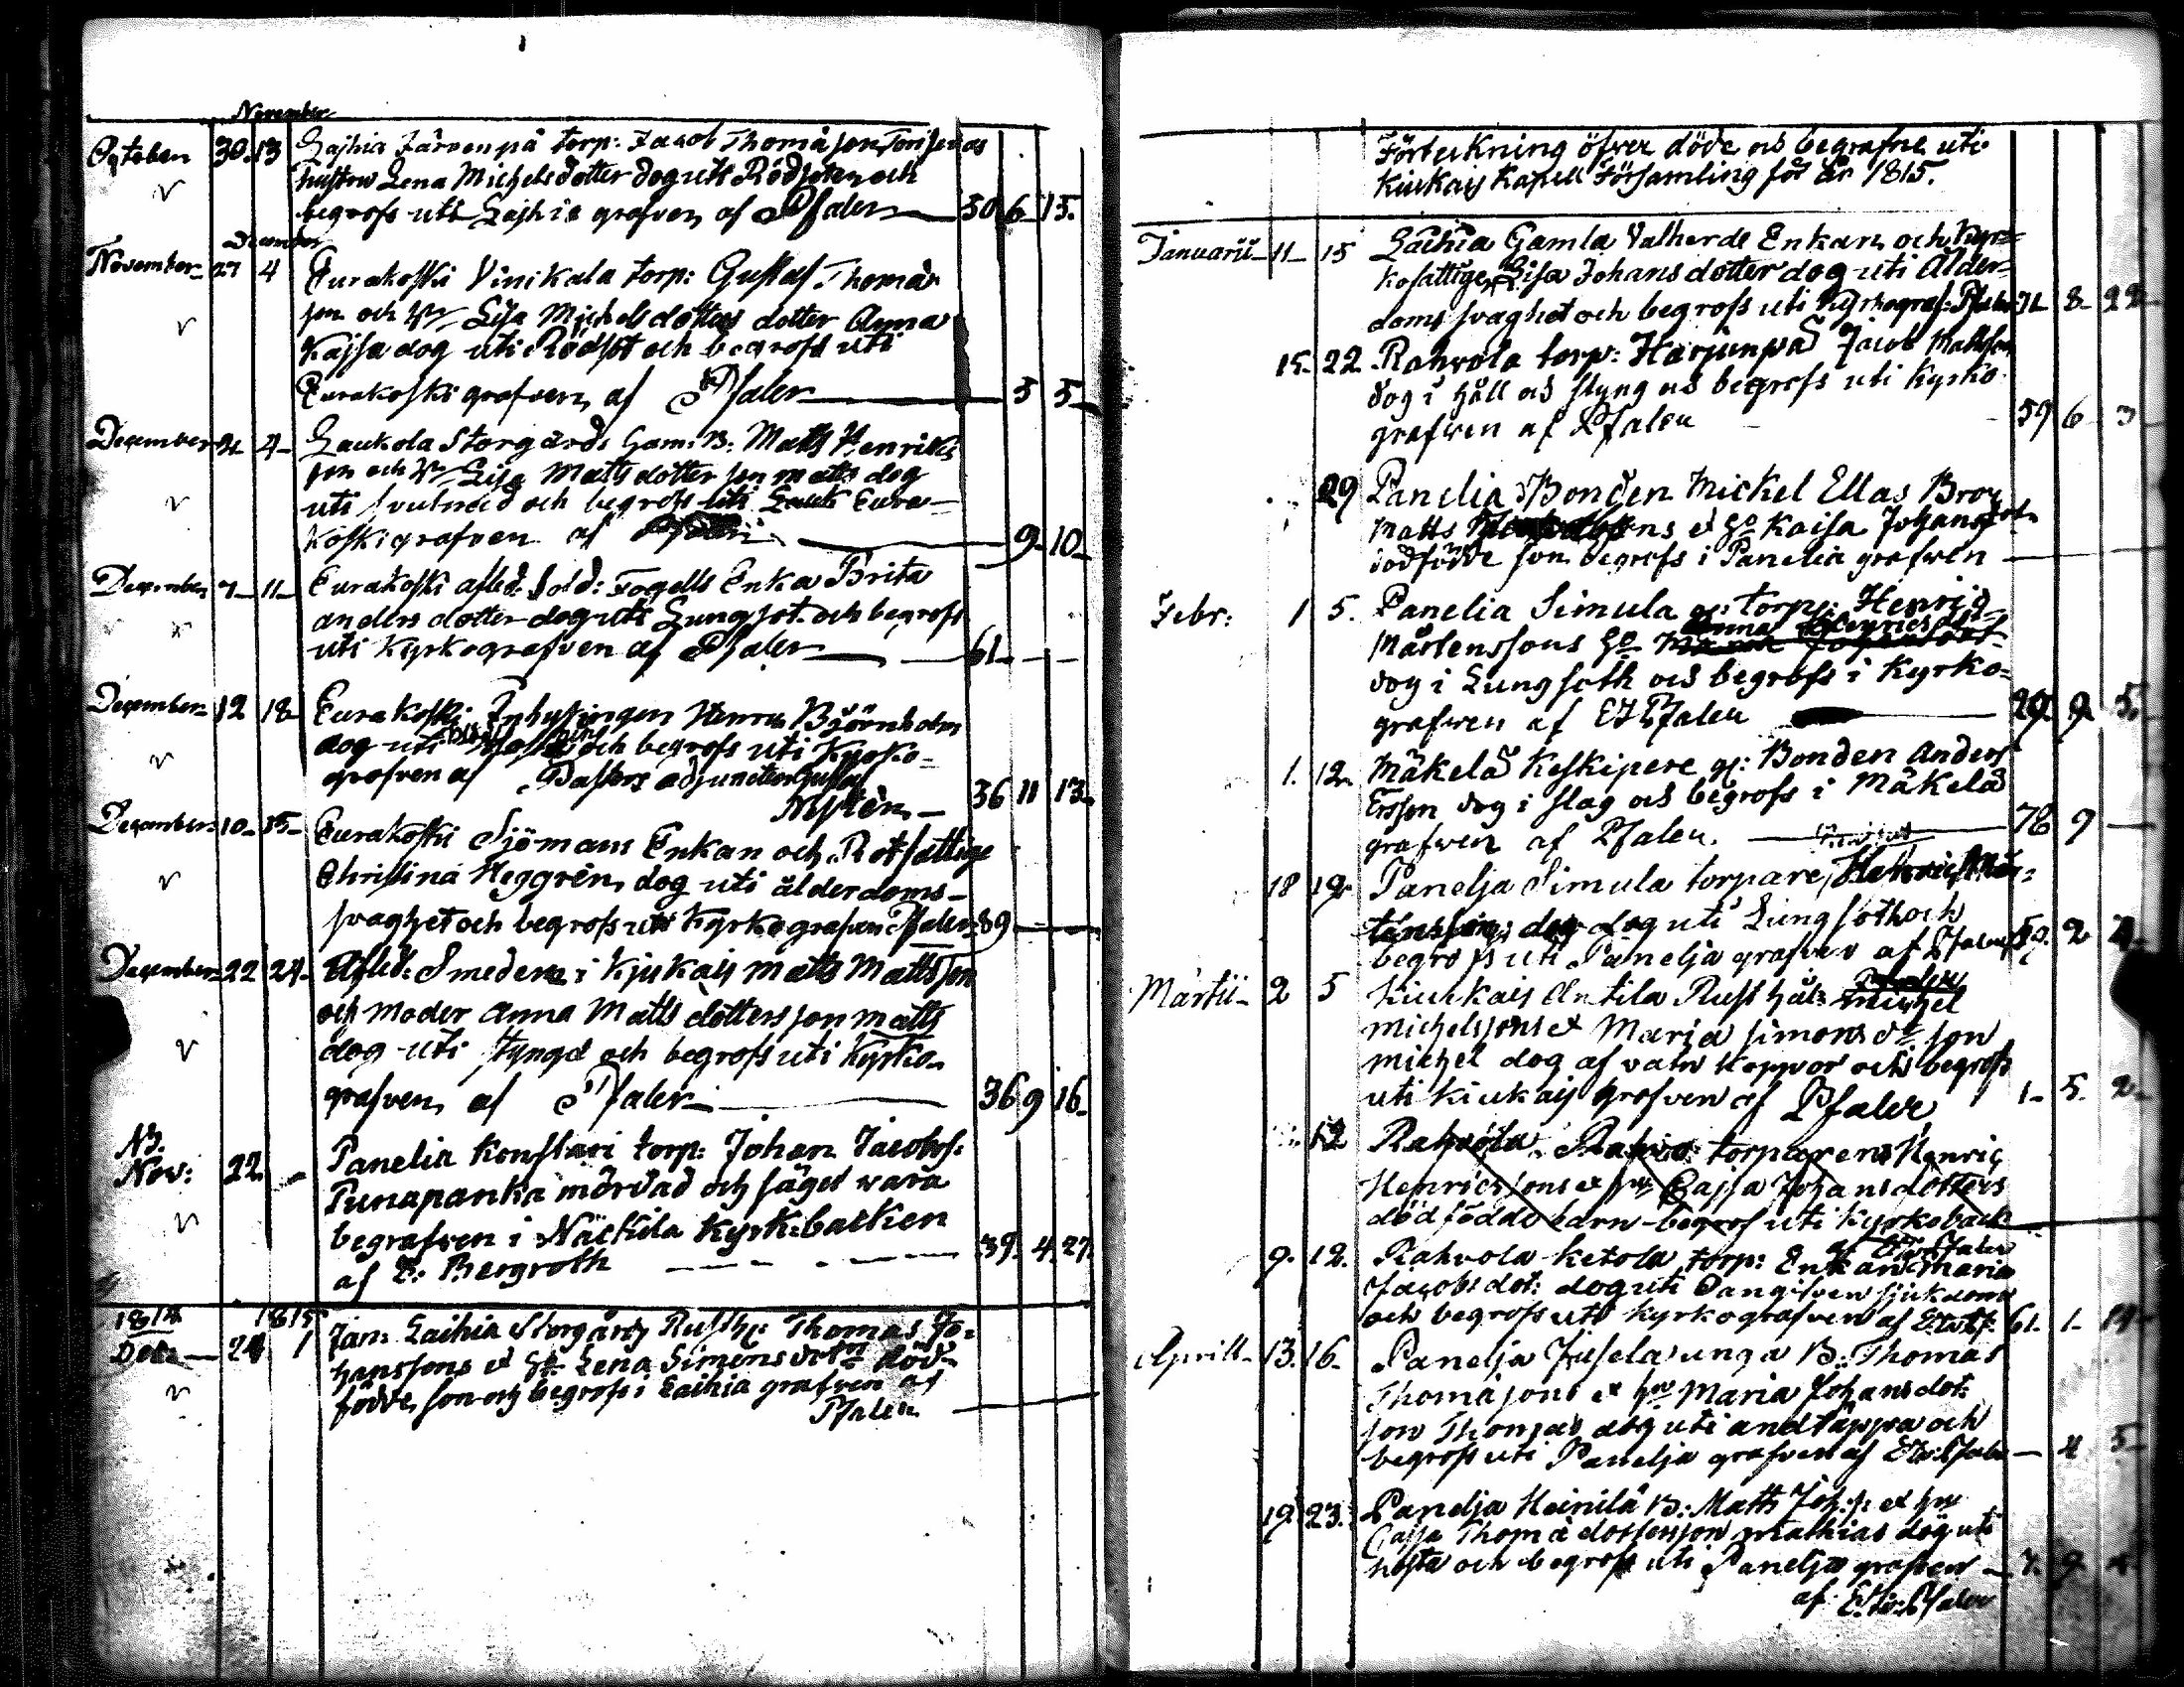 November
October 30. 13 Laihia Järvenpä torp: Jacob Thomason
hustru Lena Michelsdotter dog uti Rödsoten och
begrofs uti Laihia grafven af Pfaler 50 6 15.
December
November 27 4 Eurakoski Vinikala torp: Gustaf Thomas
son och Hu Lisa Michelsdotters dotter Anna
Kajsa dog uti Rödsot och begrofs uti
Eurakoski grafven af Pfaler 3 5
December 4 Laukola Storgårds Gam: B: Matts Henriks
son och Hu Lisa Mattsdotter son Matts dog
uti och begrofs uti Eura-
koski grafven af 9 10
December 7 11 Eurakoski afled: Sold: Fogells Enka Brita
Anders dotter dog uti Lungsot och begrofs
uti Kyrkografven af Pfaler 61
December 12 18 Eurakoski Inhysingen Henric Björnholm
dog uti och begrofs uti Kyrko-
grafven af Pastors adjuncten Gustaf
Nystén 36 11 13.
December 10 15 Eurakoski Sjömans Enkan och Rotfattige
Christina Heggrén dog uti ålderdoms-
svaghet och begrofs uti Kyrkografven Pfaler 89
December 22 24 Afled: Smedens i Kjukais Matts Mattsson
och moder Anna Matts dotters son Matts
dog uti styngd och begrofs uti Kyrko-
grafven af Pfaler 36 9 16
NB.
Nov: 22. Panelia Konstari torp: Johan Jacobs:
Punapanka mördad och säges vara
begrafven i Näckila Kyrk-backen
af E: Bergroth 39. 4. 27.
1814 1815
Dec: 24 1 Jan: Laihia Storgårds Rusth: Thomas Jo-
hanssons et Hu Lena Simonsdott död-
födde son och begrofs i Laihia grafven af
Pfaler
Förteckning öfver döde och begrafne uti
Kiukais Kapell Församling för år 1815.
Januarii 11 15 Laihia Gamla Valherde Enkan och Kyr-
kofattige Lisa Johansdotter dog uti Ålder-
doms svaghet och begrofs uti Kyrkograf: Pfaler 71 8 22
15. 22. Rahvola torp: Harjunpä Jacob Mattson
dog i håll och styng och begrofs uti Kyrko
grafven af Pfaler 59 6 3
29 Panelia Bonden Mickel Ellas Bror
Matts et Hu Kaisa Johansdot.
dödfödde son begrofs i Panelia grafven
Febr: 1 5. Panelia Simula torp: Henric
Mårtenssons Hu Anna Henrics
dog i Lungsoth och begrofs i Kyrko-
grafven af Pfaler 29. 9. 5.
1. 12. Mäkelä Keskipere g: Bonden Anders
Ersson dog i slag och begrofs i Mäkelä
grafven af Pfaler. 78 9
18 19 Panelja Simula torpare Henric Mår-
tensson dog uti Lungsoth och
begrofs uti Panelja grafven af Pfaler 2
Martii 2 5 Kiukais Antila Rusthål: Michel
Michelssons et Maria Simonsdr son
Michel dog af vatu koppor och begrofs
uti Kiukais grafven af Pfaler 1 5 2
12 Rahvola torparens Henric
Henricssons et hu Cajsa Johansdotters
dödfödde barn begrof uti Kyrkoback
af Pfaler
9. 12. Rahvola Ketola torp: Enkan Maria
Jacobsdot: dog uti sjukdom
och begrofs uti Kyrkografven af 61. 1
Aprill 13. 16. Panelja Jusela unga B: Thomas
Thomasons et hu Maria Johansdot:
son Thomas dog uti andtäppa och
begrofs uti Panelja grafven af Pfaler 4 5
19. 23. Panelja Heinilä B: Matts Joh: et hu
Cajsa Thomædotters son Mathias dog uti
hosta och begrofs uti Panelja grafven 7. 9
af Pfaler